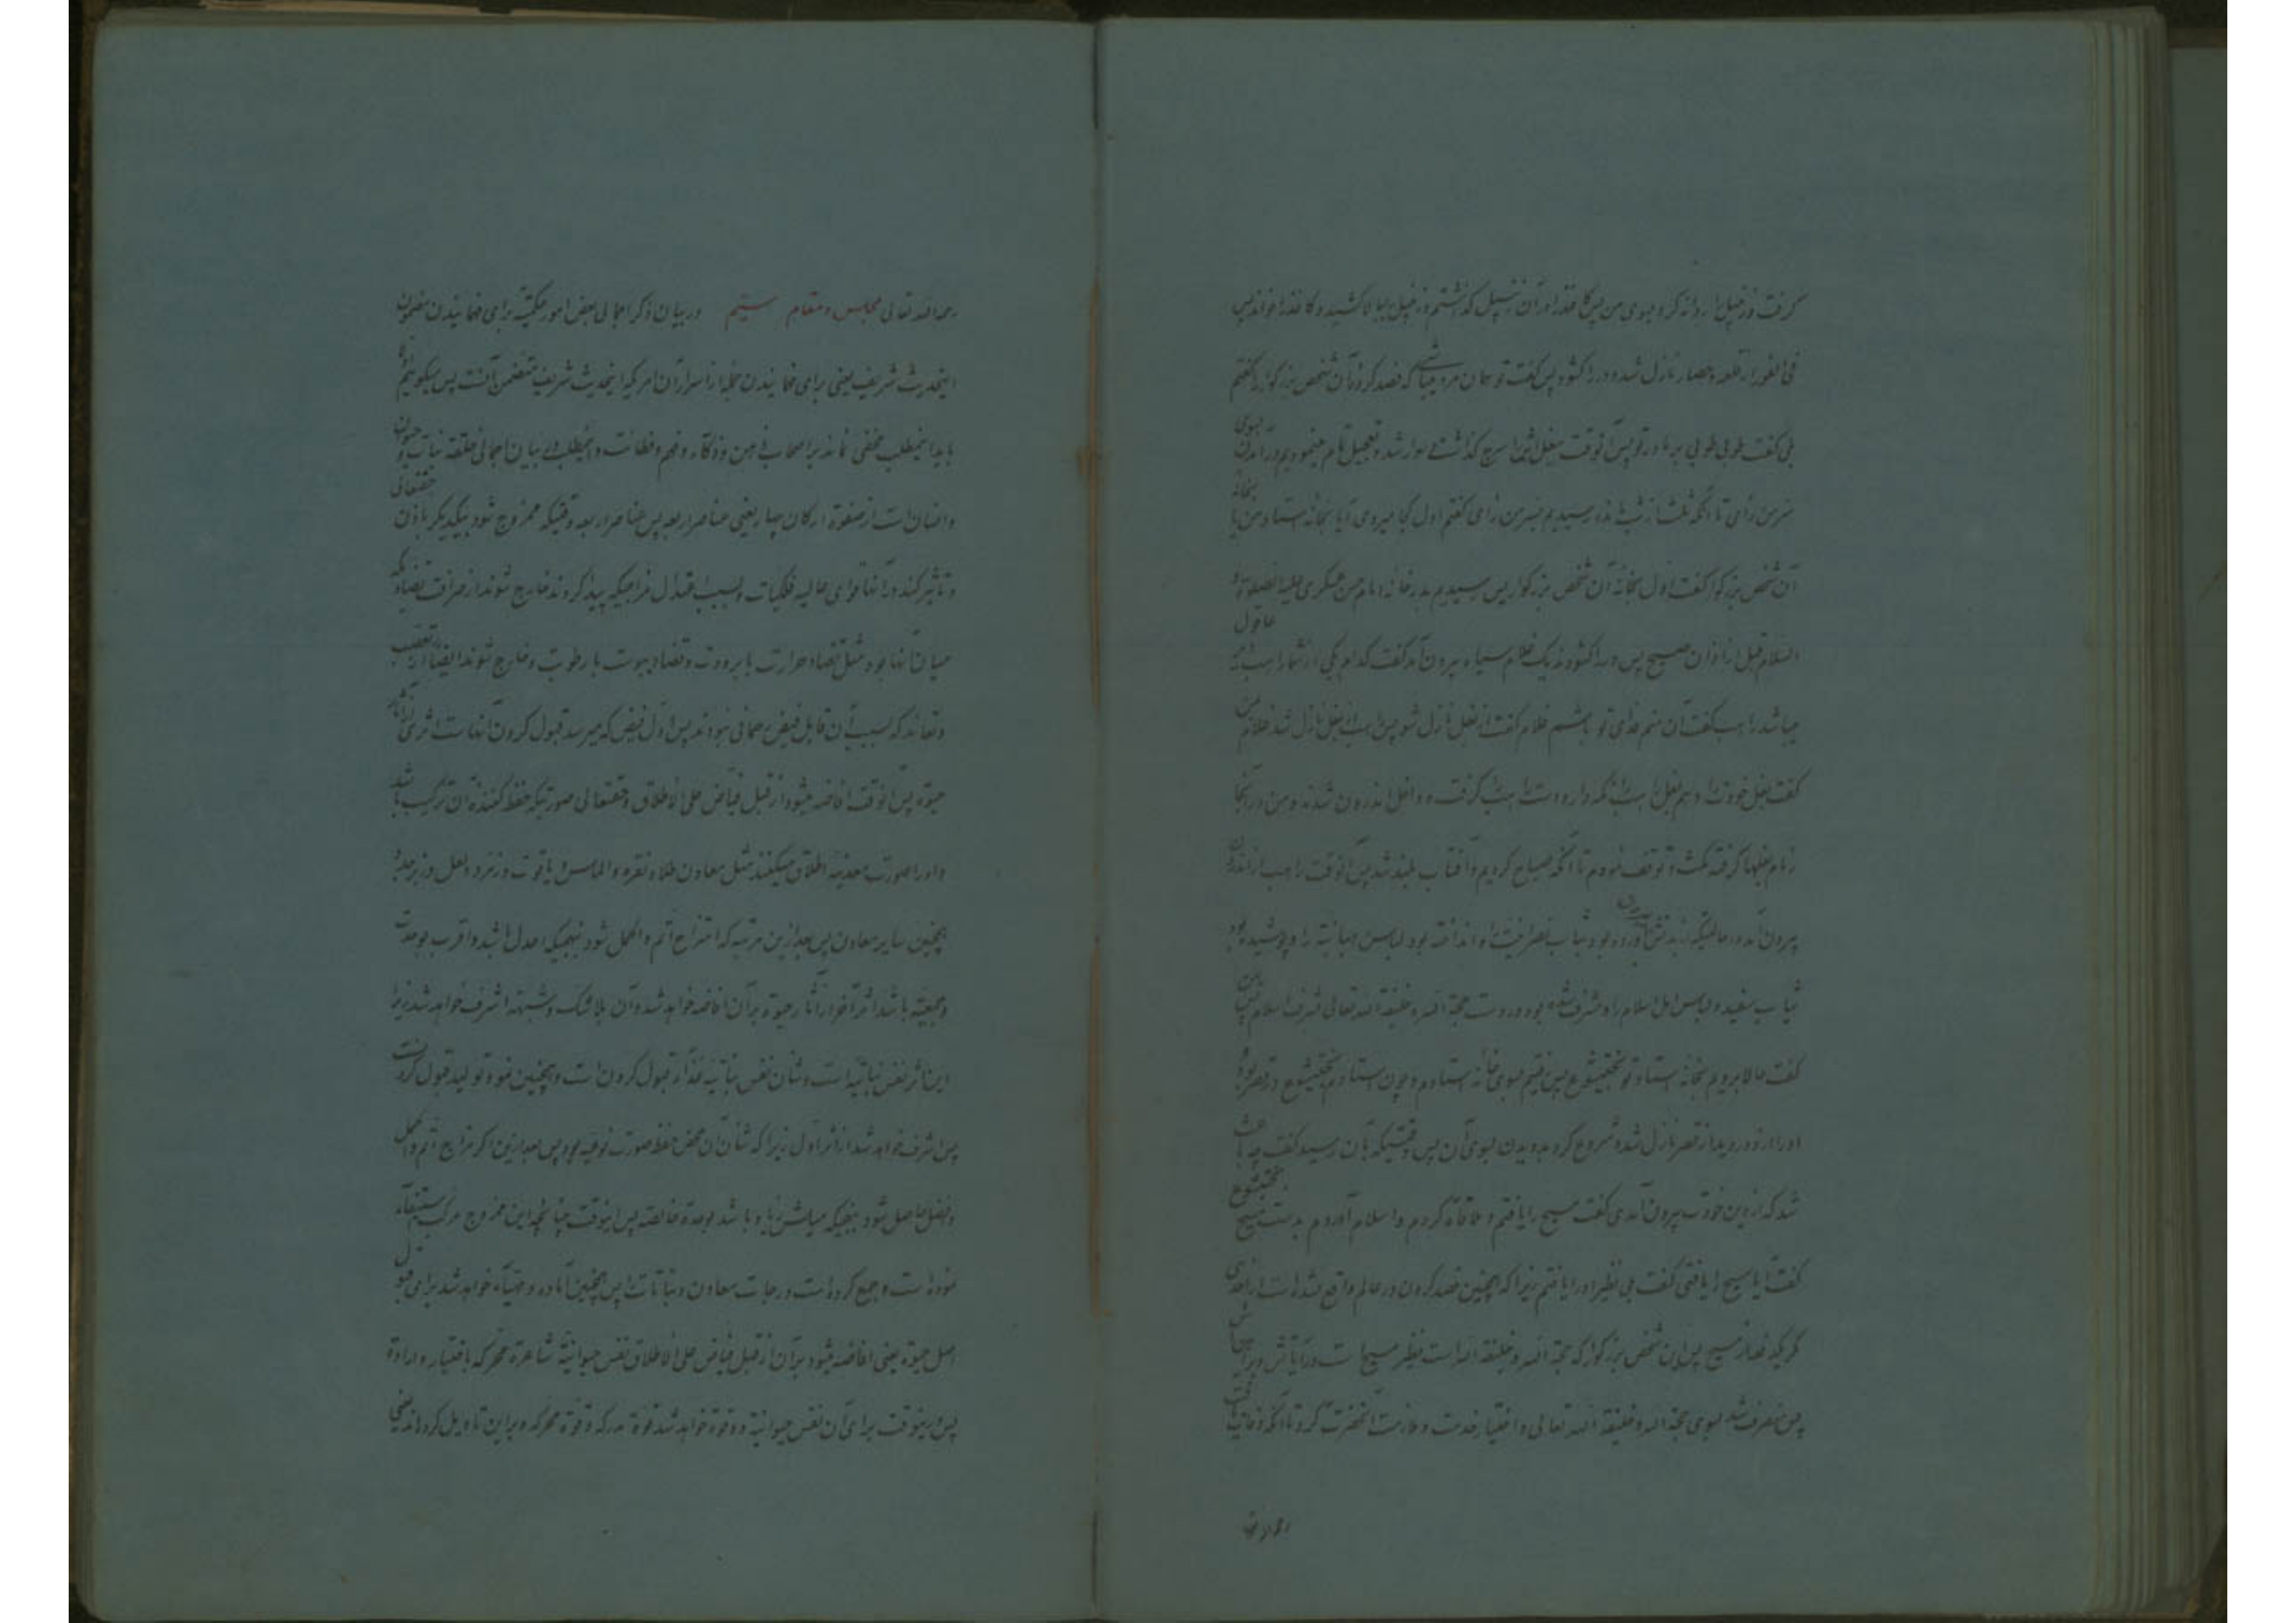 گرفت و زنبیل را روانه کرد بسوی من پس کاغذ را در آن زنبیل گذاشتم و زنبیل را ببالا کشید و کاغذ را خواند پس
فی الفور از قلعه و حصار نازل شده و در را کشود پس گفت تو همان مرد میباشی که فصد کرد آن شخص بزرگوار را گفتم
بلی گفت طوبی طوبی بر مادر تو پس آنوقت ببغل سرج گذاشته سوار شد و تعجیل تام مینمودیم در آمدن بسوی
سر من رأی تا آنکه ثلث از شب ماند رسیدیم بسر من رأی گفتم اول کجا میروی آیا بخانه استاد من یا بخانه
آن شخص بزرگوار گفت اول بخانه آن شخص بزرگوار پس رسیدیم بدر خانه امام حسن عسکری علیه الصلوة و
السلام قبل از اذان صبح پس در را کشودند یک غلام سیاه بیرون آمد گفت کدام یکی از شما راهب دیر عاقول
میباشد راهب گفت آن منم فدای تو باشم غلام گفت از بغل نازل شو پس راهب از بغل نازل شد غلام بمن
گفت بغل خودت را و هم بغل راهب را نگه دار و دست راهب را گرفت و داخل اندرون شدند و من در آنجا
زمام بغلها گرفته مکث و توقف نمودم تا آنکه صباح کردیم و آفتاب بلند شد پس آنوقت راهب از اندرون
بیرون آمد در حالتیکه از بدنش بیرون آورده بود ثیاب نصرانیت را و انداخته بود لباس رهبانیة را و پوشیده بود
ثیاب سفید و لباس اهل اسلام را و مشرف شده بود در دست حجة الله و خلیفة الله تعالی بشرف اسلام پس بمن
گفت حالا برویم بخانه استاد تو بختیشوع پس رفتیم بسوی خانه استادم و چون استادم بختیشوع در قصر بود و
او را از دور دید از قصر نازل شده شروع کرد بدویدن بسوی آن پس وقتیکه بآن رسید گفت چه باعث
شد که از دین خودت بیرون آمدی گفت مسیح را یافتم و ملاقات کردم و اسلام آوردم بدست مسیح بختیشوع
گفت آیا مسیح را یافتی گفت بلی نظیر او را یافتم زیرا که اینچنین فصد کردن در عالم واقع نشده است از احدی
مگر یکدفعه از مسیح پس این شخص بزرگوار که حجة الله و خلیفة الله است نظیر مسیح است در آیاتش و براهینش
پس منصرف شد بسوی حجة الله و خلیفة الله تعالی و اختیار خدمت و ملازمت آنحضرت کرد تا آنکه وفات یافت
رحمه الله تعالی
رحمه الله تعالی مجلس و مقام سیّم در بیان ذکر اجمالی بعض امور حکمیّه برای فهمانیدن مضمون
اینحدیث شریف یعنی برای فهمانیدن جمله از اسرار آن امریکه اینحدیث شریف متضمن آنست پس میگوئیم اولا
باید اینمطلب مخفی نماند بر اصحاب ذهن و ذکاء و فهم و فطانت و اینمطلب در بیان اجمالی خلقة نبات و حیوان
و انسان است از صفوة ارکان چهار یعنی عناصر اربعه پس عناصر اربعه وقتیکه ممزوج شود بیکدیگر باذن حقتعالی
و تأثیر کند در آنها قوای عالیه فلکیات و بسبب اعتدال مزاجیکه پیدا کردند خارج شوند از صرافت تضادیکه
میان آنها بود مثل تضاد حرارت با برودت و تضاد یبوست با رطوبت و خارج شوند ایضا از تعصب
و تعاند که بسبب آن قابل فیض رحمانی نبودند پس اول فیض که میرسد قبول کردن آنهاست اثری از آثار
حیوة پس آنوقت افاضه میشود از قبل فیاض علی الاطلاق و حقتعالی صورتیکه حفظ کننده آن ترکیب باشد
و او را صورت معدنیه اطلاق میکنند مثل معادن طلا و نقره و الماس و یاقوت و زمرد و لعل و زبرجد و
همچنین سایر معادن پس بعد ازین مرتبه که امتزاج اتم و اکمل شود بنهجیکه اعدل باشد و اقرب بوحدت
و جمعیّة باشد اثر آخر از آثار حیوة بر آن افاضه خواهد شد و آن بلا شک و شبهه اشرف خواهد شد زیرا
این اثر نفس نباتیه است و شأن نفس نباتیه غذا را قبول کردن است و همچنین نمو و تولید قبول کردنست
پس اشرف خواهد شد از اثر اول زیرا که شأن آن محض حفظ صورت نوعیه بود پس بعد ازین اگر مزاج اتم و اکمل
و افضل حاصل شود بنهجیکه میباشد باشد بوحدة خالصه پس اینوقت چنانچه این ممزوج مرکب استیفاء
نموده است و جمع کرده است درجات معادن و نباتات را پس همچنین آماده و مهیّاء خواهد شد برای قبول
اصل حیوة یعنی افاضه میشود بر آن از قبل فیاض علی الاطلاق نفس حیوانیّة شاعرة متحرکه باختیار و ارادة
پس اینوقت برای آن نفس حیوانیّة دو قوة خواهد شد قوة مدرکه و قوة محرکه و بر این تاویل کرده‌اند بعضی